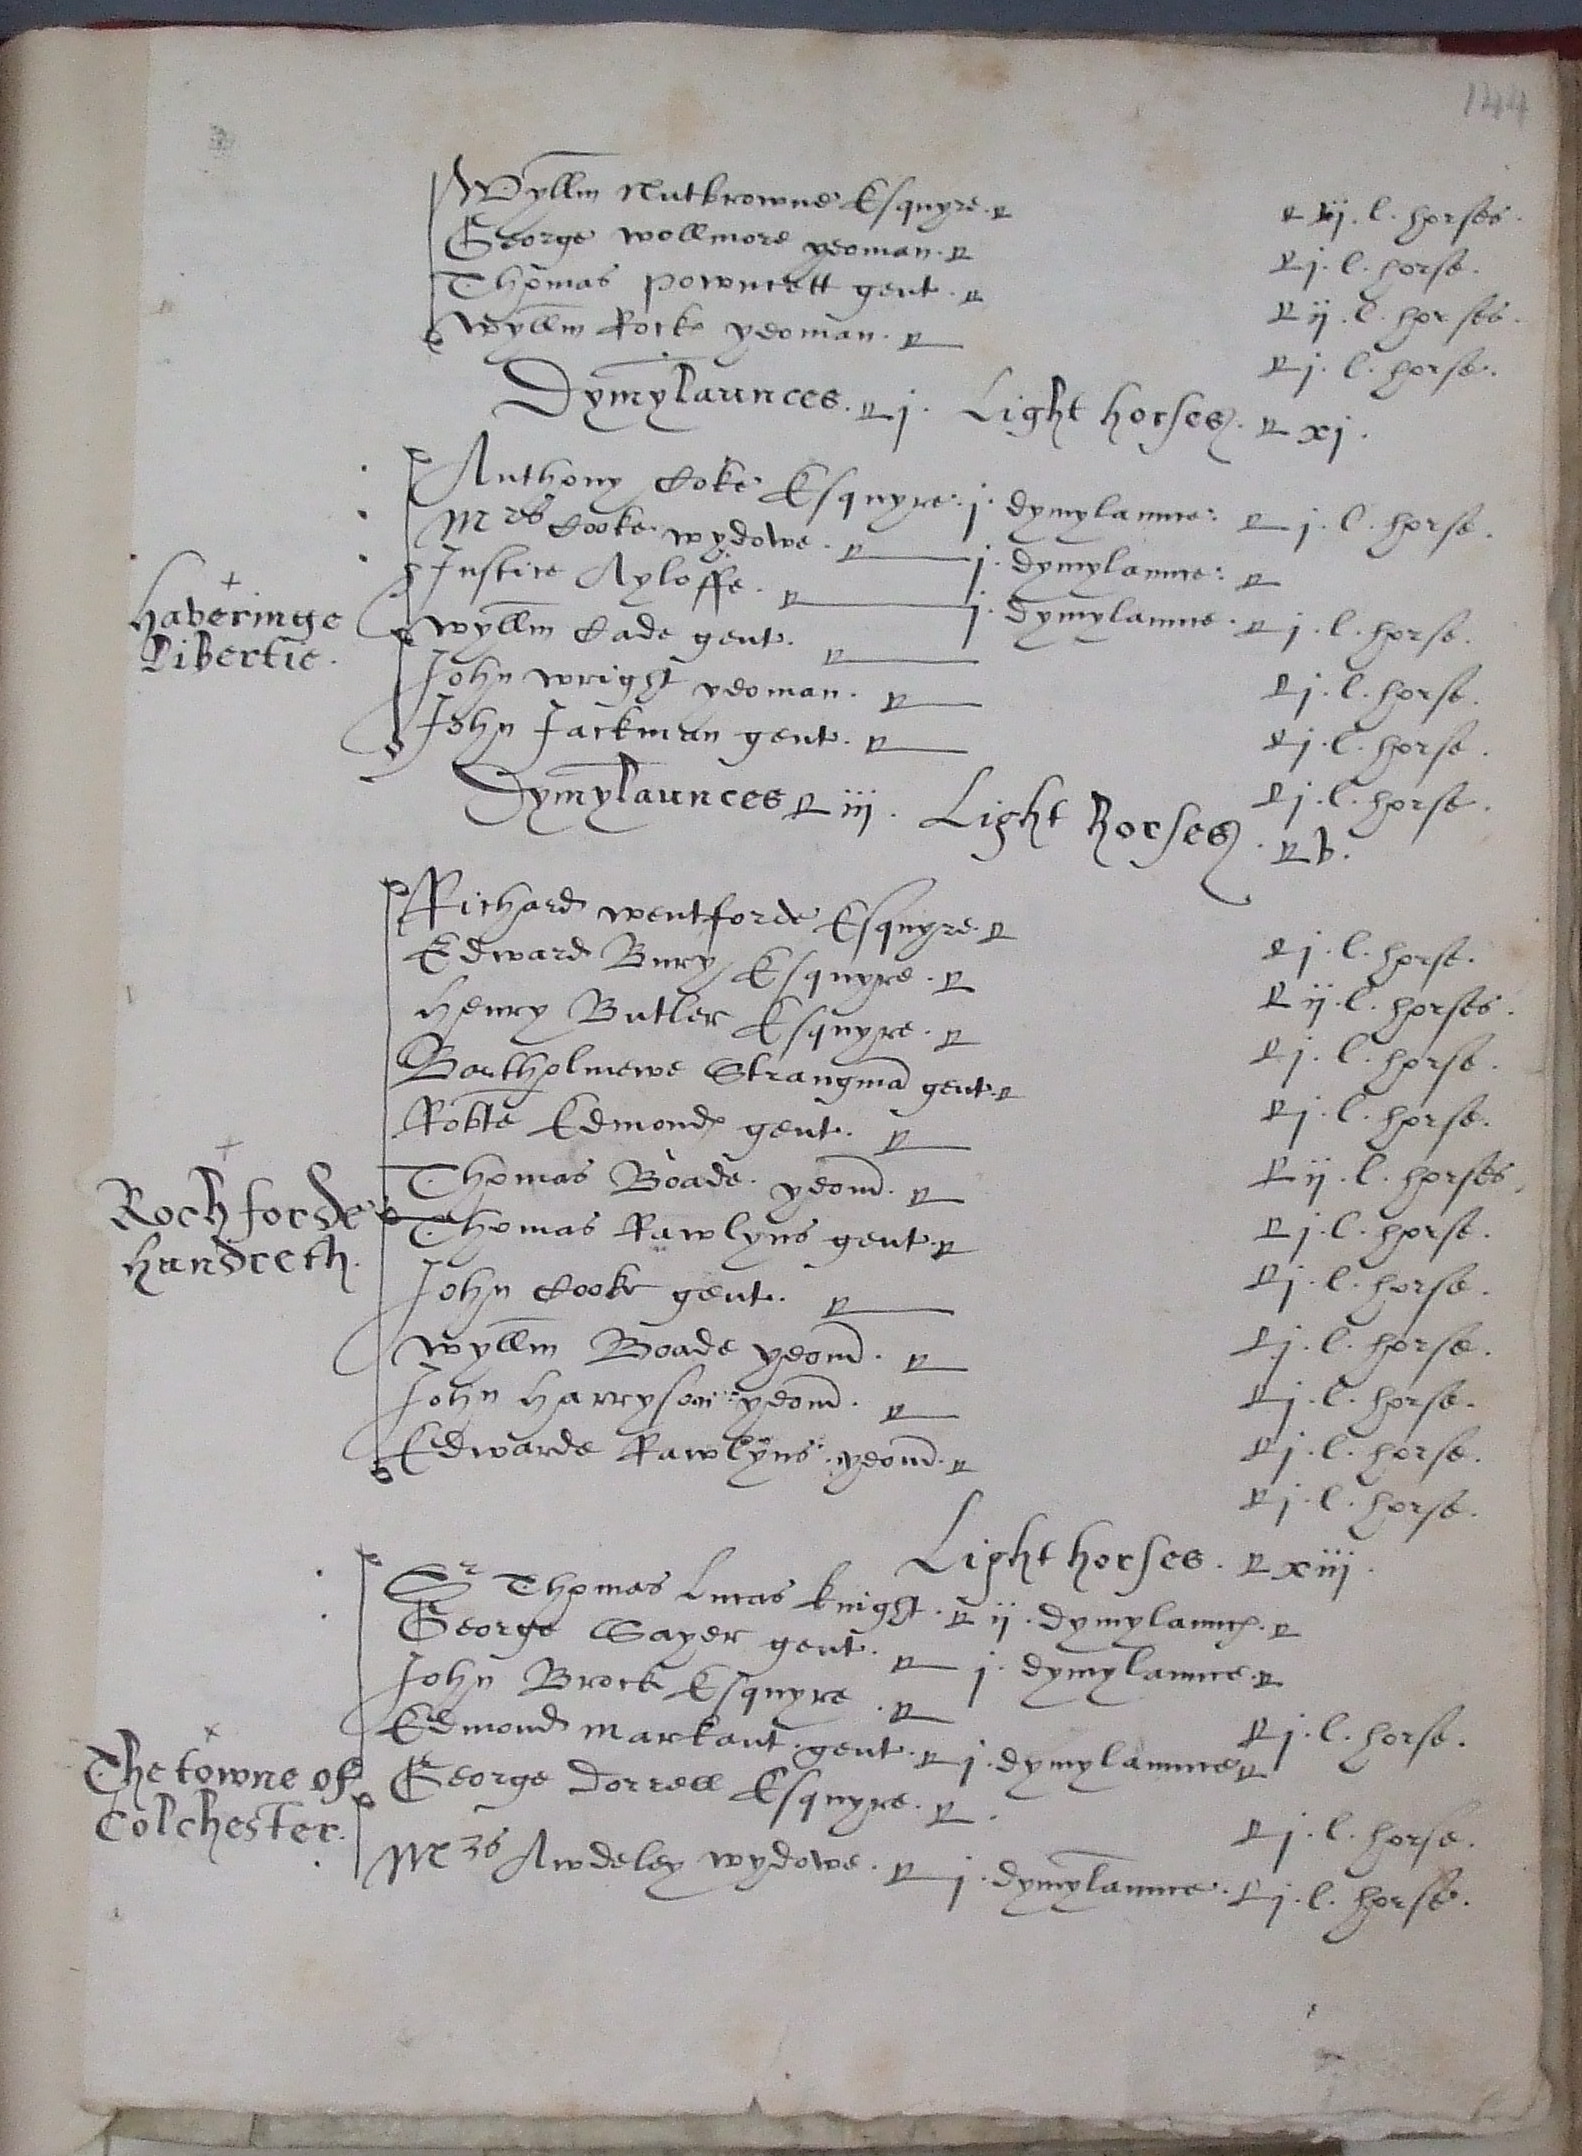 144
Wyllm Nutbrowne Esquyre. ij. l. horses.
George Wollmore yeoman. j. l. horse.
Thomas Powncett gent. ij. l. horses.
Wyllm Rocke yeoman. j. l. horse.
Dymylaunces. j. Light horses. xj.
Anthony Coke Esquyre. j. dymylaunce. j. l. horse.
Mres Cooke wydowe. j. dymylaunce.
Justice Ayloffe. j. dymylaunce. j. l. horse.
Haveringe
Libertie.
Wyllm Cade gent. j. l. horse.
John Wright yeoman. j. l. horse.
John Jackman gent. j. l. horse.
Dymylaunces iij. Light horses. v.
Richard Wentforde Esquyre. j. l. horse.
Edward Bury Esquyre. ij. l. horses.
Henry Butler Esquyre. j. l. horse.
Bartholmewe Strangma gent. j. l. horse.
Robte Edmond gent. ij. l. horses.
Thomas Boade. yeom. j. l. horse.
Rochforde
Hundreth.
Thomas Rawlyns gent. j. l. horse.
John Cooke gent. j. l. horse.
Wyllm Boade yeom. j. l. horse.
John Harryson yeom. j. l. horse.
Edwarde Rawlyns. yeom. j. l. horse.
Light horses. xiij.
Sr Thomas Lucas knight. ij. dymylaunc.
George Sayer gent. j. dymylaunce.
John Brock Esquyre. j. l. horse.
Edmond Markant. gent. j. dymylaunce
The towne of
Colchester.
George Dorrell Esquyre. j. l. horse.
Mres Awdeley wydowe. j. dymylaunce. j. l. horse.